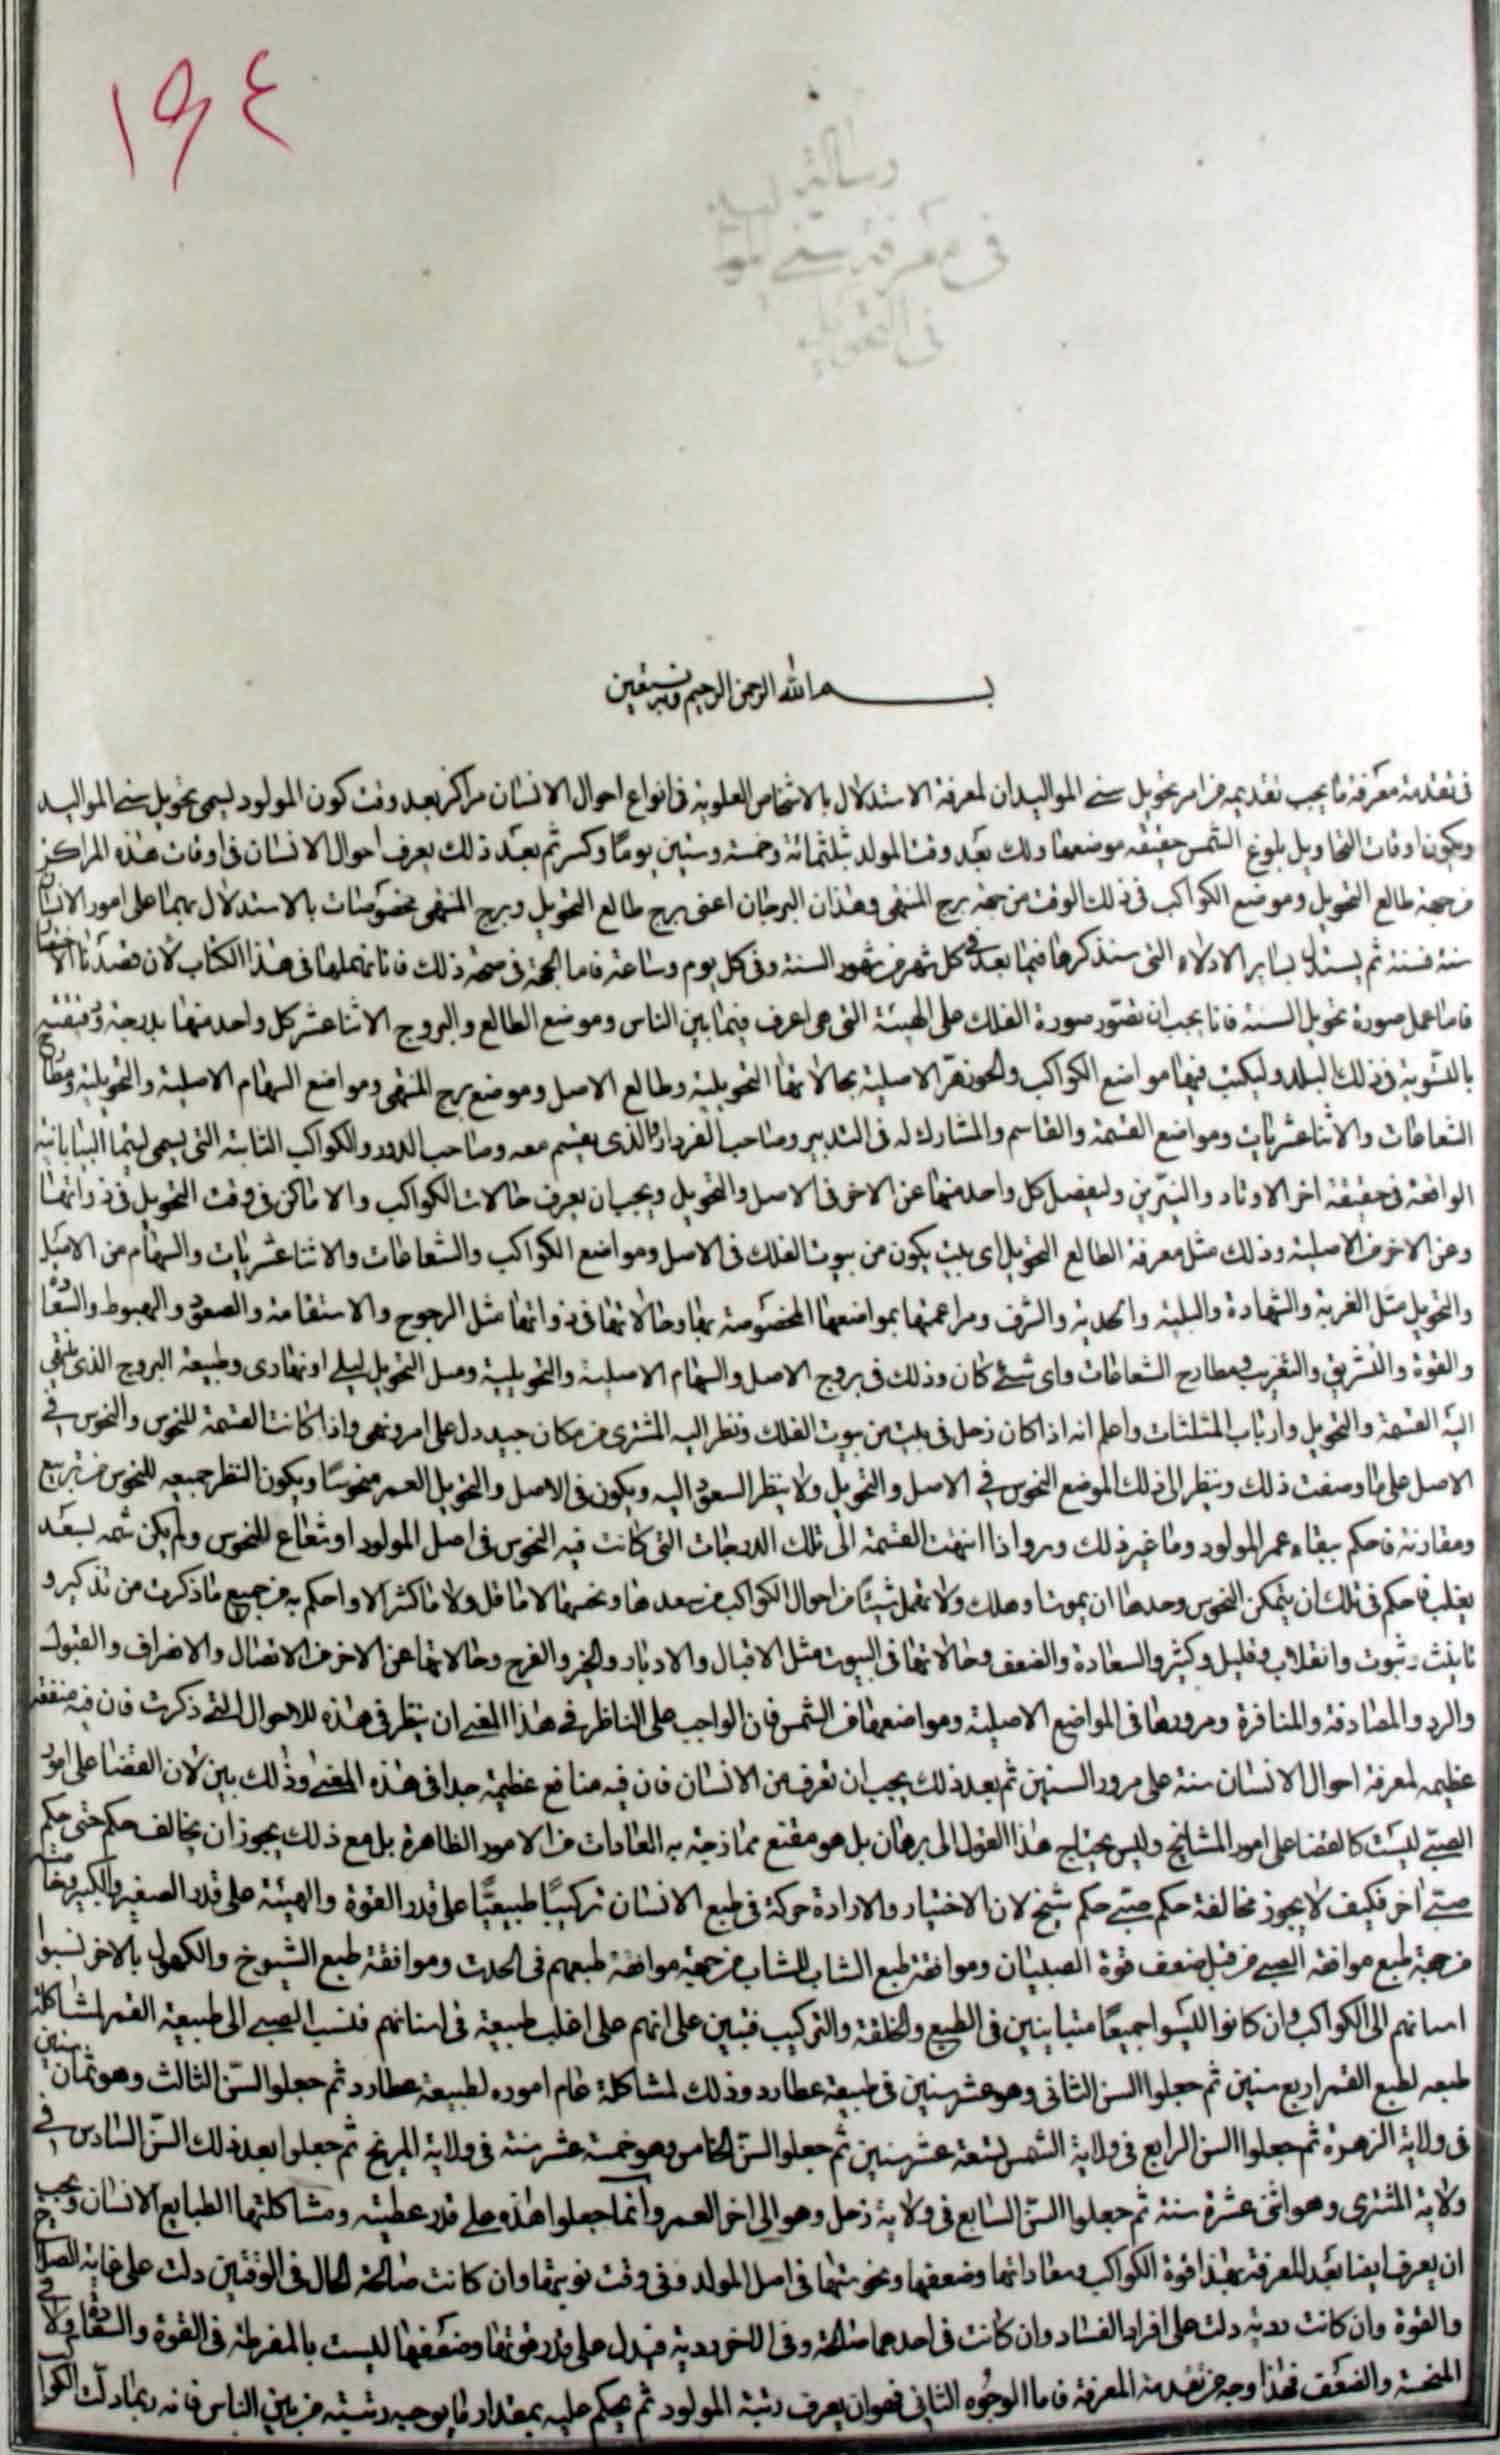 ١٩٤
رسالة
فى معرفة سنى المواليد
فى التقويم
بسم الله الرحمن الرحيم وبه نستعين
فى تقدمة معرفة ما يجب تقديمه من امر تحويل سنى المواليد ان لمعرفة الاستدلال بالاشخاص العلوية فى انواع احوال الانسان مراكز بعد وقت كون المولود ليسمى تحويل سنى المواليد
ويكون اوقات التحاويل بلوغ الشمس حقيقة موضعها وذلك بعد وقت المولد بثلثمائة وخمسة وستين يومًا وكسر ثم بعد ذلك يعرف احوال الانسان فى اوقات هذه المراكز
من جهة طالع التحويل وموضع الكواكب فى ذلك الوقت من جهة برج المنتهى وهذان البرجان اعنى برج طالع التحويل وبرج المنتهى مخصوصات بالاستدلال بهما على امور الانسان
سنة فسنة ثم يستدل بساير الادلاء التى سنذكرها فيما بعد فى كل شهر من شهور السنة وفى كل يوم وساعة فاما الحجة فى صحة ذلك فانا نهملها فى هذا الكتاب لان قصدنا الاختصار
فاما عمل صورة تحويل السنة فانا يجب ان نصور صورة الفلك على الهيئة التى هى اعرف فيما بين الناس وموضع الطالع والبروج الاثنا عشر كل واحد منها بدرجة ودقيقة
بالتسوية فى ذلك البلد وليكتب فيها مواضع الكواكب والجوزهر الاصلية بحالاتها التحويلية وطالع الاصل وموضع برج المنتهى ومواضع السهام الاصلية والتحويلية ومطارح
الشعاعات والاثنا عشريات ومواضع القسمة والقاسم والمشارك له فى التدبير وصاحب الفردار والذى يقسم معه وصاحب الدور والكواكب الثابتة التى يسمى ليتما البيابانية
الواقعة فى حقيقة اخر الاوتاد والنيرين وليفصل كل واحد منها عن الاخر فى الاصل والتحويل ويجب ان يعرف حالات الكواكب والاماكن فى وقت التحويل فى ذواتها
وعن الاخر من الاصلية وذلك مثل معرفة الطالع التحويل اى بيت يكون من بيوت الفلك فى الاصل ومواضع الكواكب والشعاعات والاثنا عشريات والسهام من الاصل
والتحويل مثل الغربة والشهادة والبلية والحدية والشرف ومزاعمتها بمواضعها المخصوصة بها وحالاتها فى ذواتها مثل الرجوع والاستقامة والصعود والهبوط والسعادة
والقوة والتشريق والتغريب ومطارح الشعاعات واى شئ كان وذلك فى بروج الاصل والسهام الاصلية والتحويلية ومسل التحويل ليلى او نهارى وطبيعة البروج الذى ينتهى
اليه القسمة والتحويل وارباب المثلثات واعلم انه اذا كان زحل فى بيت من بيوت الفلك ونظر اليه المشترى من مكان جيد دل على امر ونهى واذا كانت القسمة للنحوس والنحوس فى
الاصل على ما وصفت ذلك وينظر الى ذلك الموضع النحوس فى الاصل والتحويل ولا ينظر السعود اليه ويكون فى الاصل والتحويل العمر منحوسًا ويكون النظر جميعه للنحوس من تربيع
ومقارنة فاحكم ببقاء عمر المولود وما غير ذلك وروا اذا انتهت القسمة الى تلك الدرجات التى كانت فيه النحوس فى اصل المولود او شعاع للنحوس ولم يكن ثمه لسعد
يغلب فاحكم فى تلك ان يتمكن النحوس وحدها ان يموت او هلك ولا تهمل شيئًا من احوال الكواكب من سعدها ونحسها الا ما قل ولا ما كثر الا واحكم به من جميع ما ذكرت من تذكير و
تانيث وثبوت وانقلاب وقليل وكثير والسعادة والضعف وحالاتها فى البيوت مثل الاقبال والادبار والخير والفرح وحالاتها عن الاخر من الاتصال والانصراف والقبول
والرد والمصادقة والمنافرة ومرورها فى المواضع الاصلية ومواضعها من الشمس فان الواجب على الناظر فى هذا المعنى ان ينظر فى هذه الاحوال التى ذكرت فان فيه منفعة
عظيمه لمعرفة احوال الانسان سنة على مرور السنين ثم بعد ذلك يجب ان تعرف من الانسان فان فيه منافع عظيمة جدا فى هذه المعنى وذلك بين لان القضا على امور
الصبى ليست كالقضا على امور المشايخ وليس يحتاج هذا القول الى برهان بل هو مقنع مما ذجته به العادات من الامور الظاهرة بل مع ذلك يجوز ان يخالف حكم حتى حكم
صبى اخر فكيف لا يجوز مخالفة حكم صبى حكم شيخ لان الاختيار والارادة حركة فى طبع الانسان تركيبًا طبيعيًا على قدر القوة والهيئة على قدر الصغير والكبير
من جهة طبع موافقة الصبى من قبل ضعف قوة الصبيان وموافقة طبع الشاب للشاب من جهة موافقة طبعهم فى الحدث وموافقة طبع الشيوخ والكهول بالاخر نسبوا
اسنانهم الى الكواكب وان كانوا لليسوا جميعًا متباينين فى الطبع والخلقة والتركيب فتبين على انهم على اغلب طبيعة فى اسنانهم فنسب الصبى الى طبيعة القمر لمشاكلة
طبعه لطبع القمر اربع سنين ثم جعلوا السن الثانى وهو عشر سنين فى طبيعة عطارد وذلك لمشاكلة عام اموره لطبيعة عطارد ثم جعلوا السن الثالث وهو ثمان سنين
فى ولاية الزهرة ثم جعلوا السن الرابع فى ولاية الشمس تسعة عشر سنين ثم جعلوا السن الخامس وهو خمسة عشر سنة فى ولاية المريخ ثم جعلوا بعد ذلك السن السادس فى
ولاية المشترى وهو اثنى عشرة سنة ثم جعلوا السن السابع فى ولاية زحل وهو الى اخر العمر وانما جعلوا هذه على قدر عطيته ومشاكلتها الطبايع الانسان ويجب
ان يعرف ايضا بعد المعرفة بهذا قوة الكواكب وسعاداتها وضعفها ونحوستها فى اصل المولد وفى وقت نوبتها وان كانت صالحة الحال فى الوقتين دلت على غاية الصلاح
والقوة وان كانت ردية دلت على افراد الفساد وان كانت فى احدهما صالحة وفى الاخر ردية فيدل على قدر قوتها وضعفها ليست بالمفرطة فى القوة والسعادة ولا فى
المنحسة والضعف فهذا وجه من تقدمة المعرفة فاما الوجوه الثانى فهو ان يعرف رتبة المولود ثم يحكم عليه بمقدار ما يوجبه رتبته من بين الناس فانه ربما دلت الكواكب